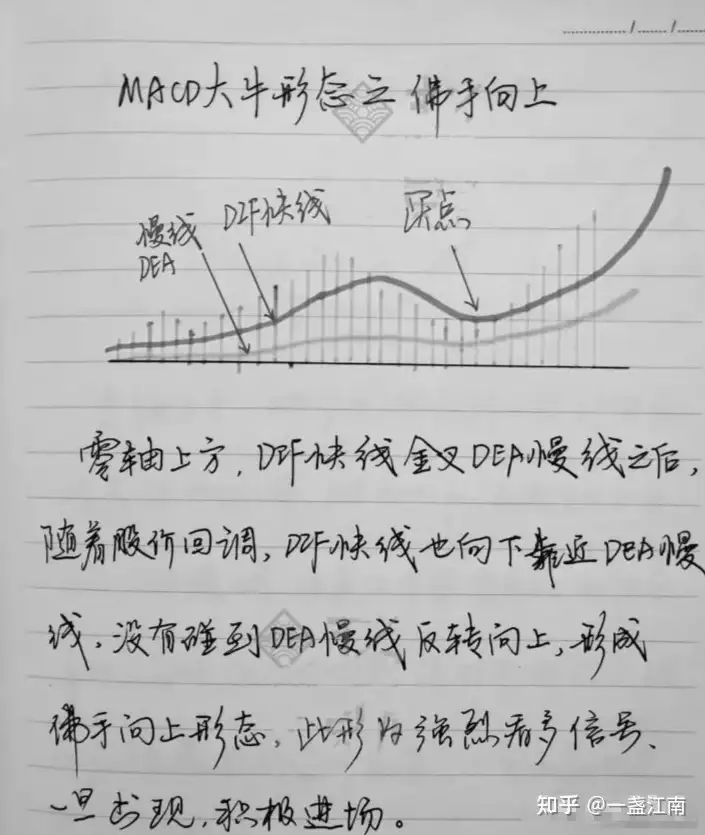 MACD大牛形态之佛手向上
慢线
DEA
DIF快线
买点
零轴上方，DIF快线金叉DEA慢线之后，
随着股价回调，DIF快线也向下靠近DEA慢
线，没有碰到DEA慢线反转向上，形成
佛手向上形态，此形为强烈看多信号、
一旦出现，积极进场。
知乎 @一盏江南